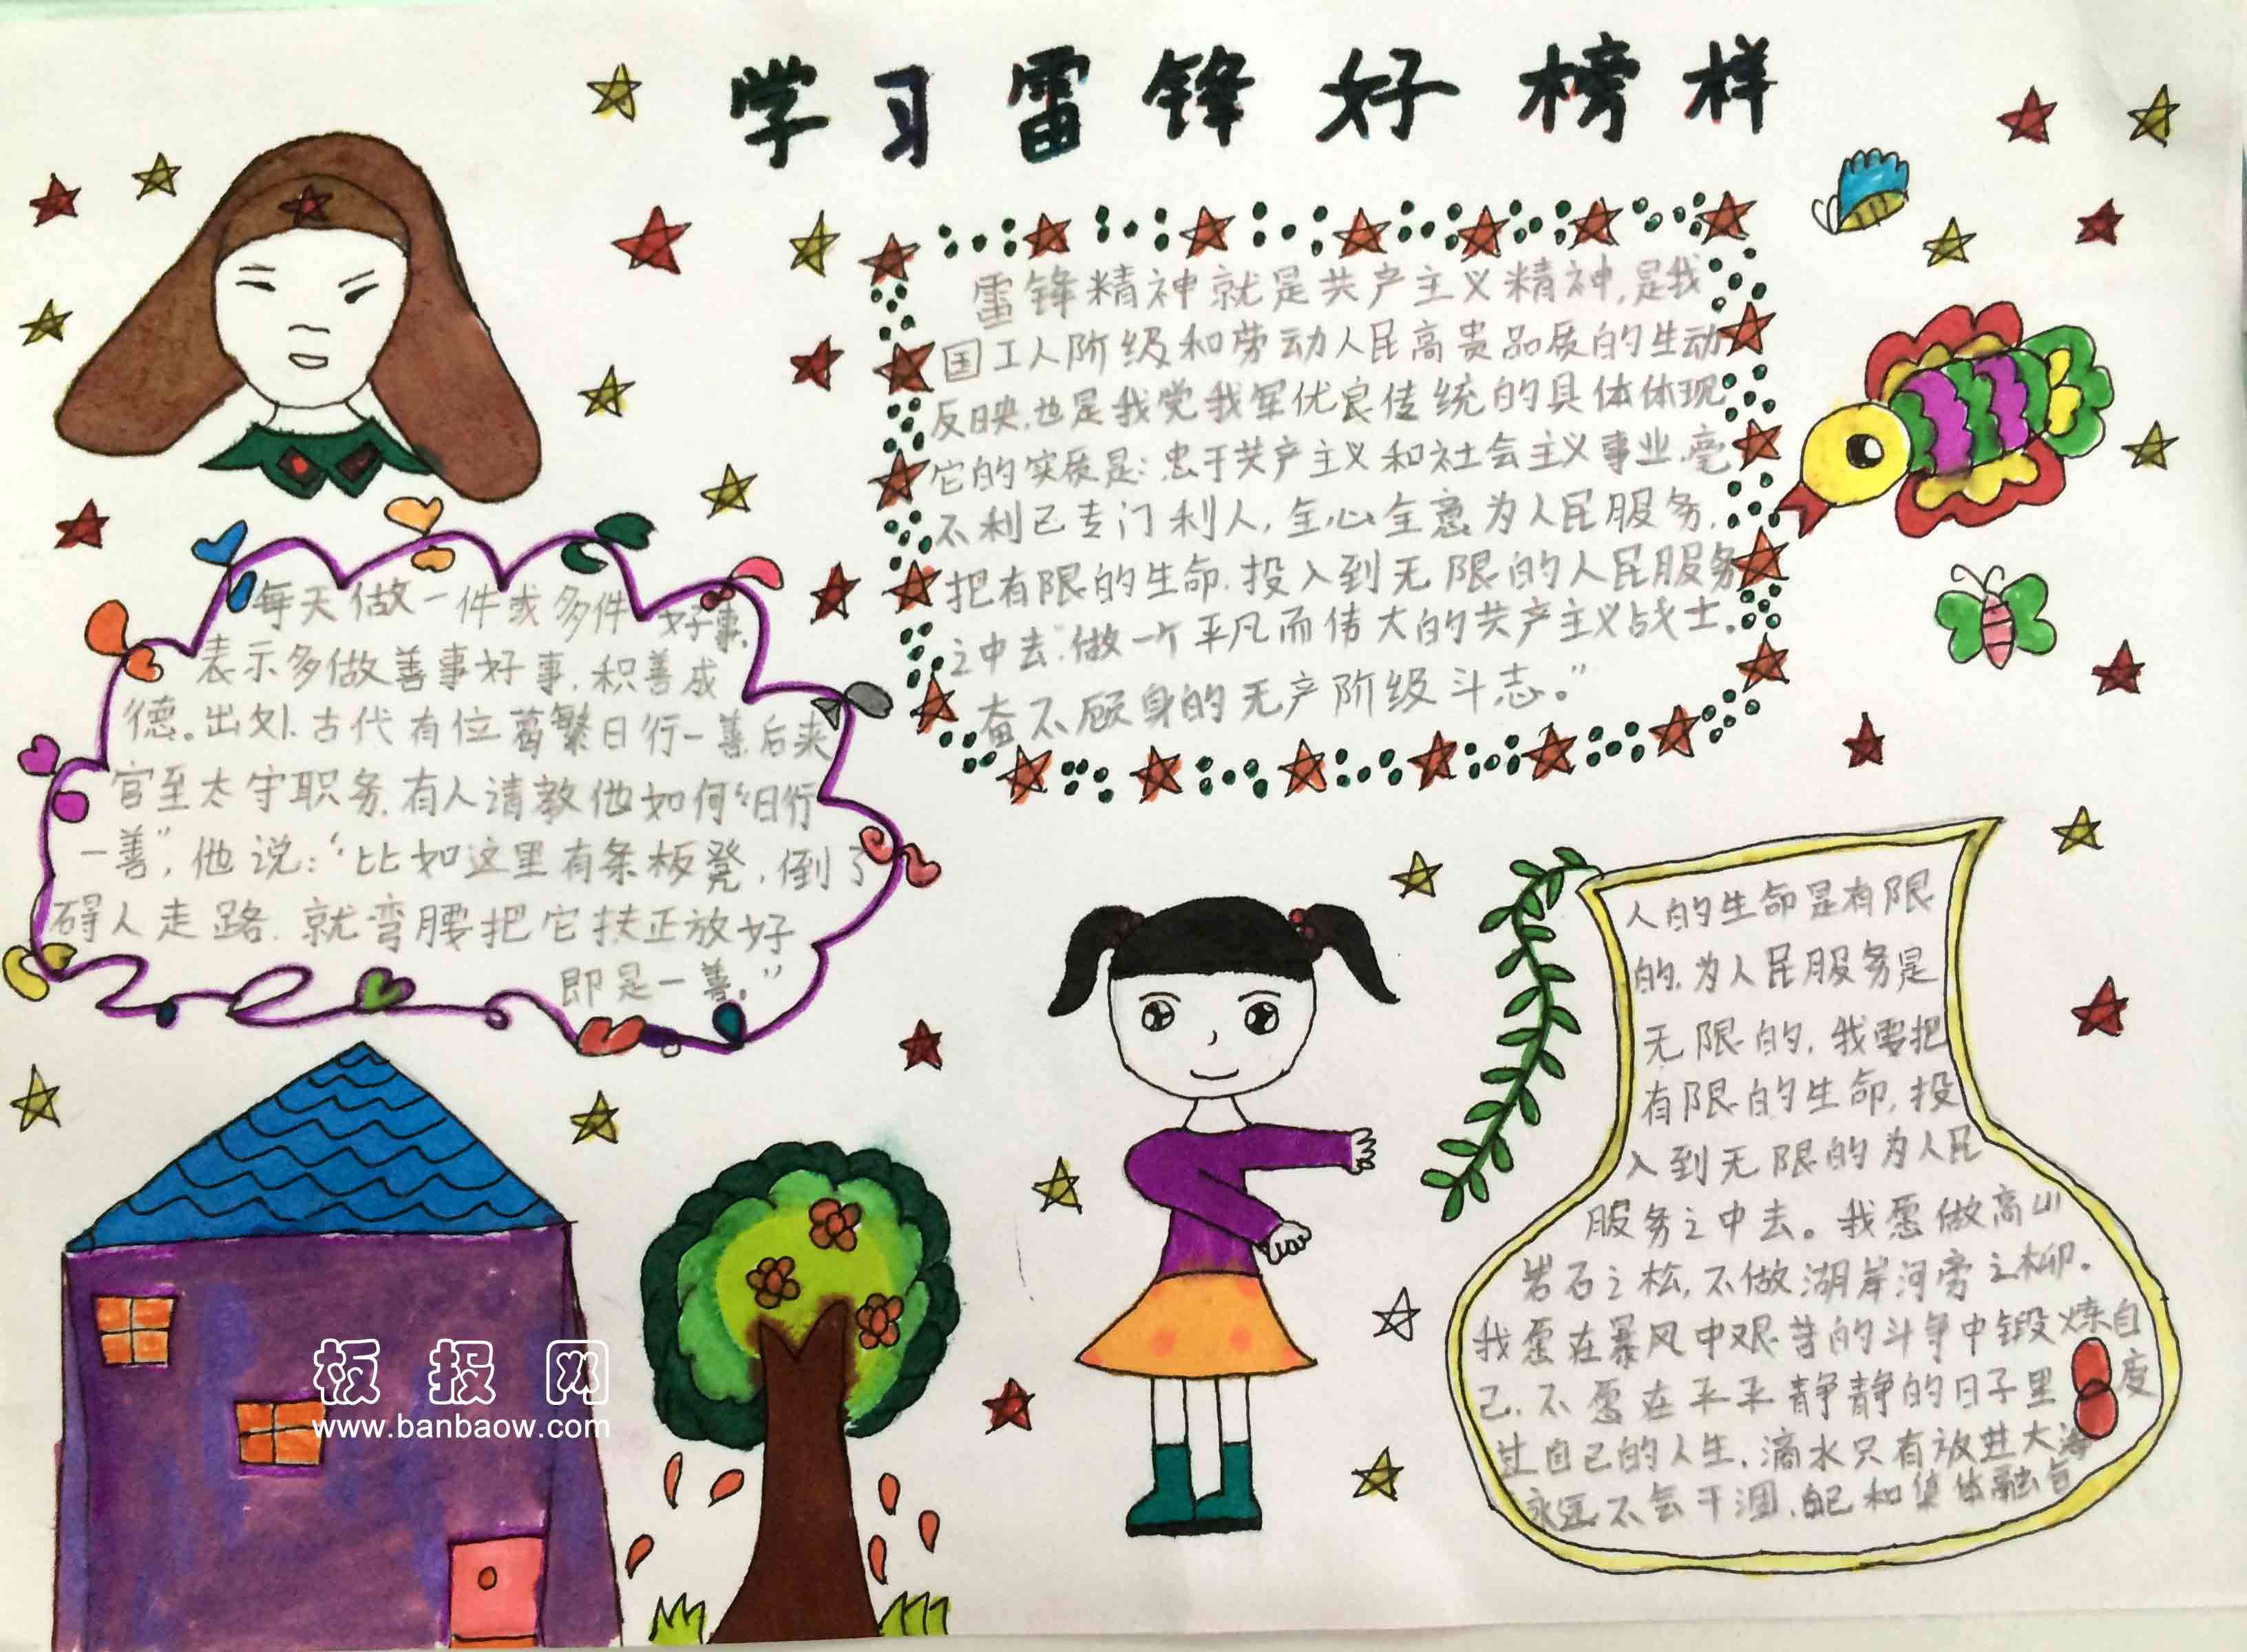 学习雷锋好榜样
雷锋精神就是共产主义精神,是我
国工人阶级和劳动人民高贵品质的生动
反映,也是我党我军优良传统的具体体现
它的实质是:忠于共产主义和社会主义事业,毫
不利己专门利人,全心全意为人民服务,
把有限的生命,投入到无限的人民服务
之中去,做一个平凡而伟大的共产主义战士。
奋不顾身的无产阶级斗志。”
每天做一件或多件好事,
表示多做善事好事,积善成
德。出处,古代有位葛繁日行一善,后来
官至太守职务,有人请教他如何“日行
一善”,他说:“比如这里有条板凳,倒了
碍人走路,就弯腰把它扶正放好
即是一善。”
人的生命是有限
的,为人民服务是
无限的,我要把
有限的生命,投
入到无限的为人民
服务之中去。我愿做高山
岩石之松,不做湖岸河旁之柳。
我愿在暴风中艰苦的斗争中锻炼自
己,不愿在平平静静的日子里度
过自己的人生,滴水只有放进大海
永远不会干涸,自己和集体融
板报网
www.banbaow.com